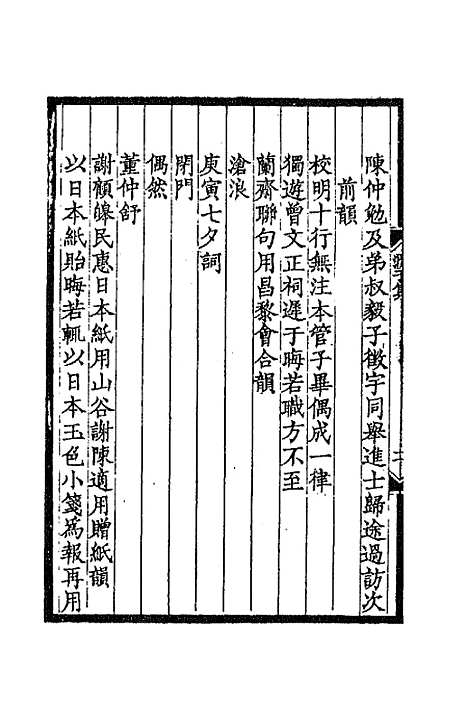 陳仲勉及弟叔毅子徵宇同舉進士歸途過訪次
前韻
校明十行無注本管子畢偶成一律
獨遊曾文正祠遲于晦若職方不至
蘭齋聯句用昌黎會合韻
滄浪
庚寅七夕詞
閉門
偶然
董仲舒
謝顏皞民惠日本紙用山谷謝陳適用贈紙韻
以日本紙貽晦若輒以日本玉色小箋為報再用